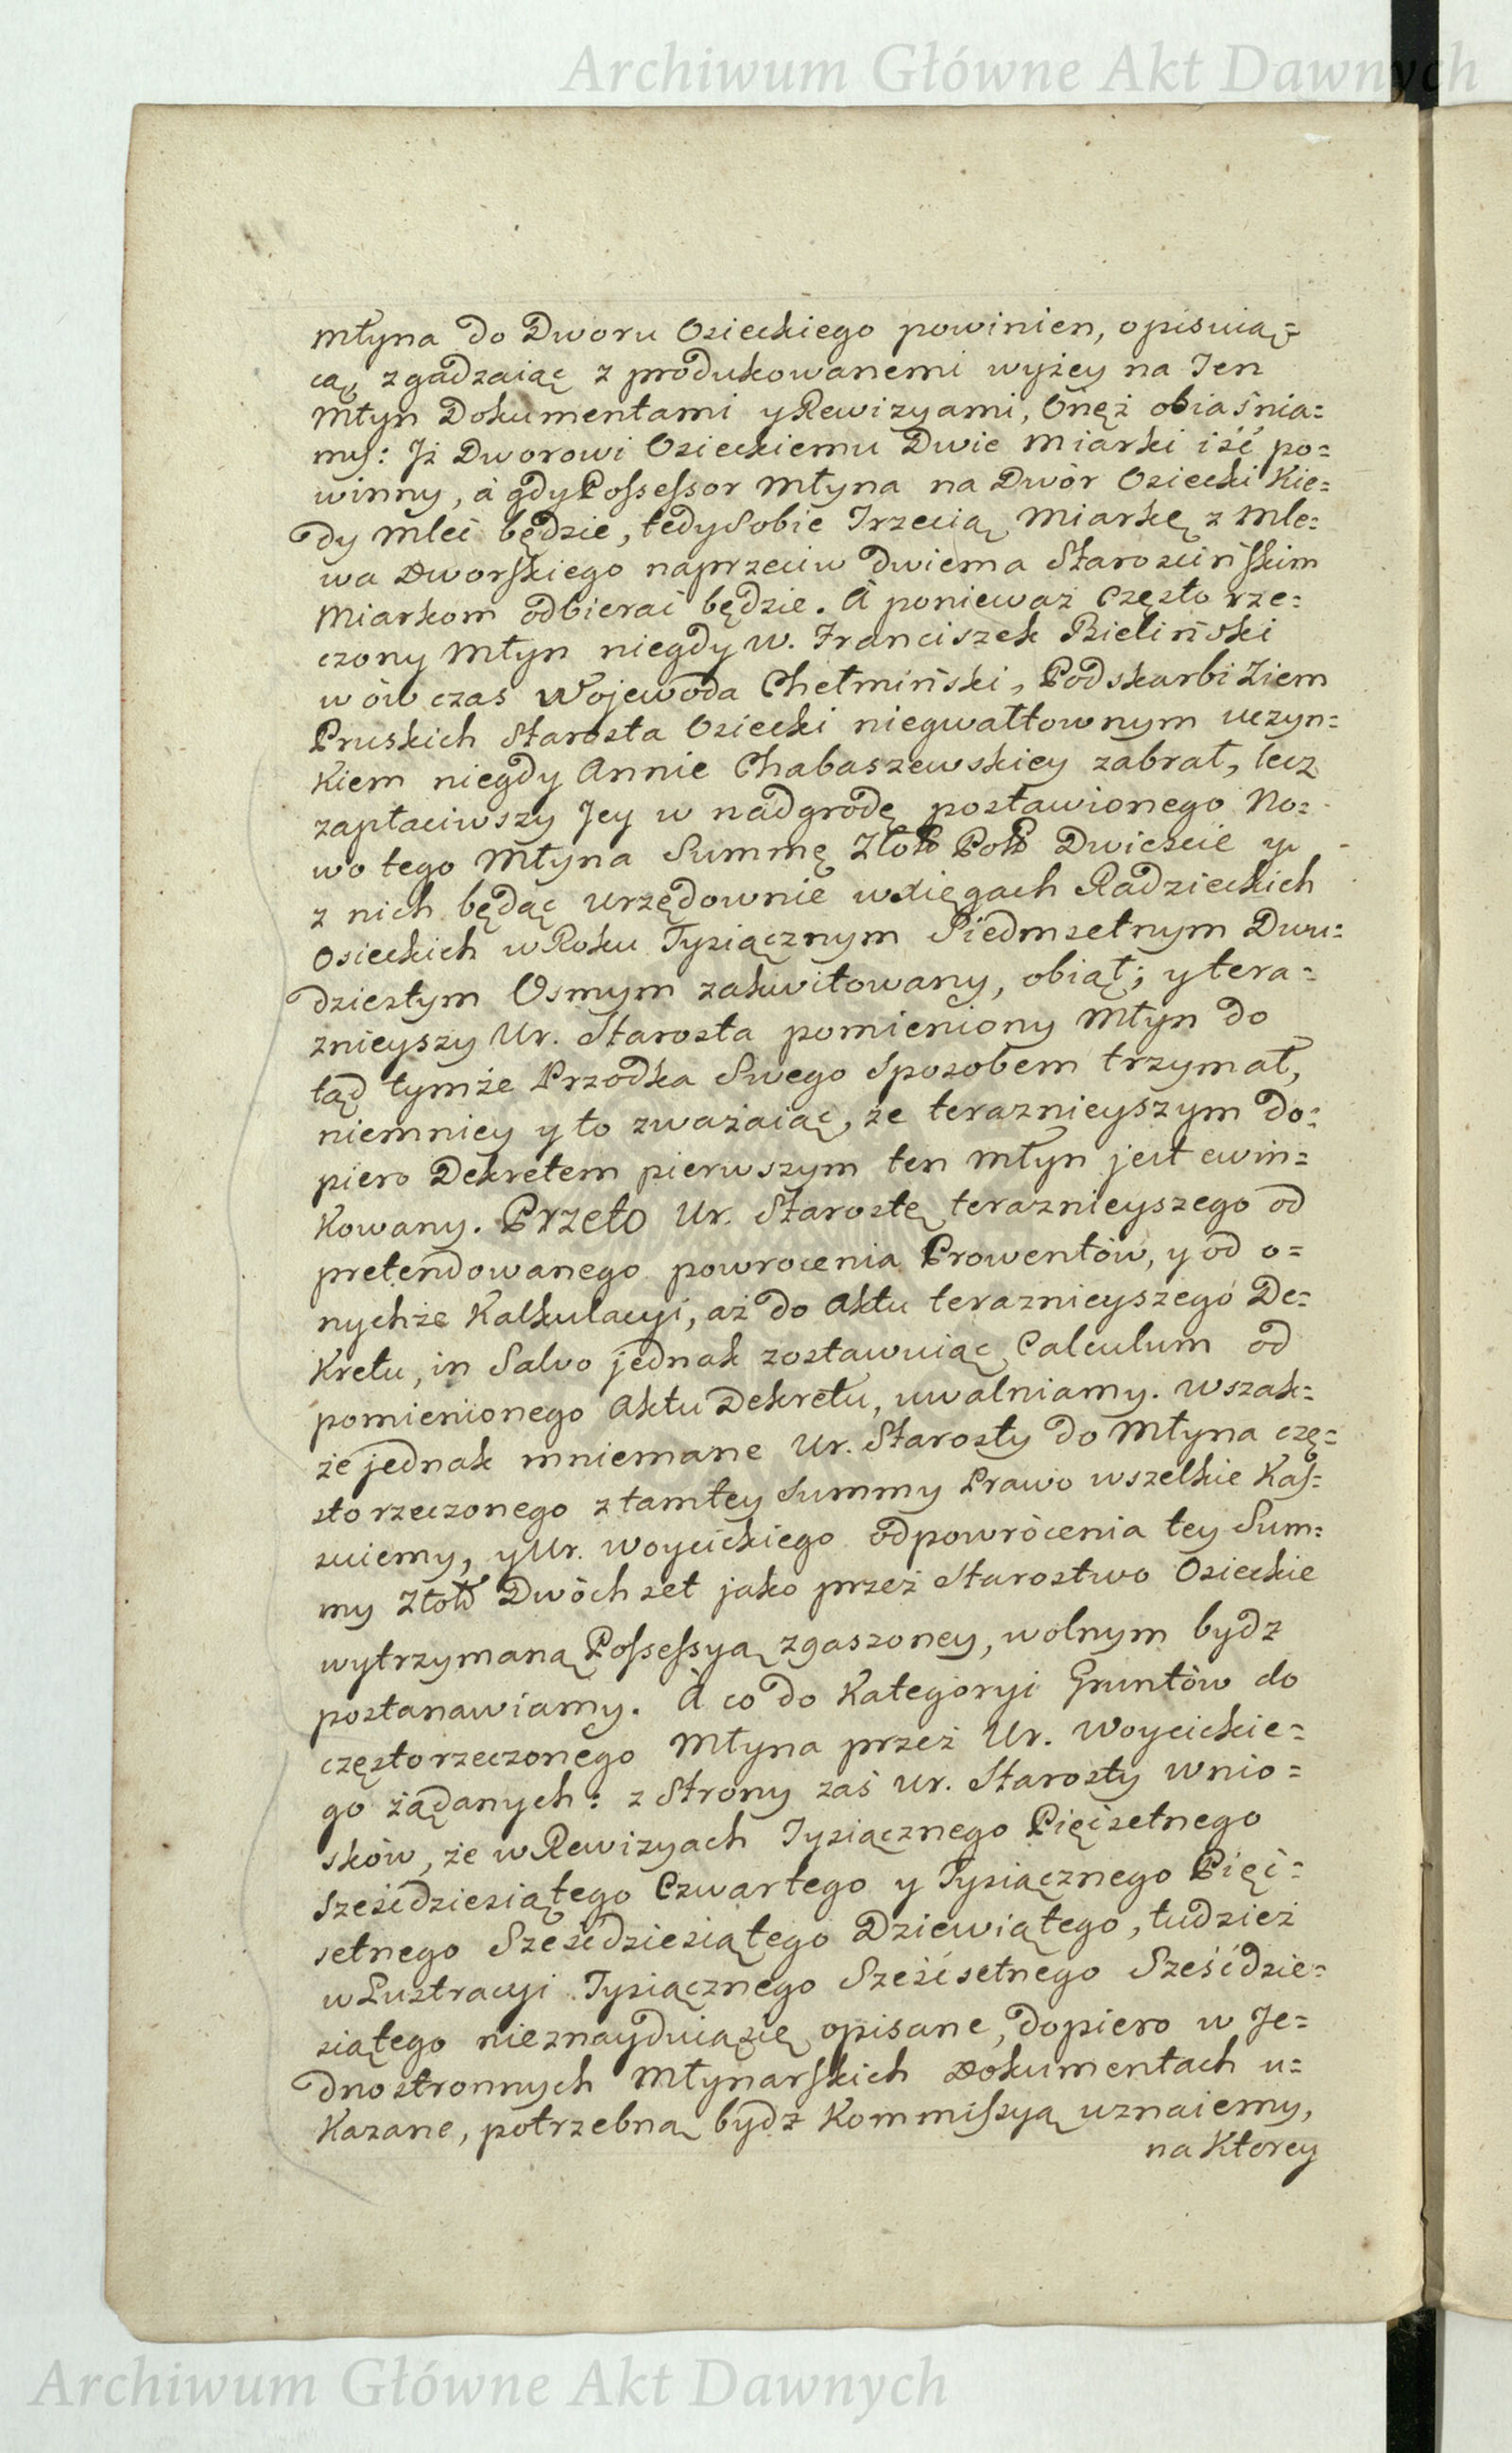 Archiwum Główne Akt Dawnych
Młyna do Dworu Osieckiego powinien, opisuią=
cą, zgadzaiąc z produkowanemi wyżey na Ten
Młyn Dokumentami y Rewizyami, Onęż obiaśnia=
my: Jż Dworowi Osieckiemu Dwie Miarki iść po=
winny, á gdy Possessor Młyna na Dwór Osiecki Kie=
dy Mleć będzie, tedy Sobie Trzecią Miarkę z Mle=
wa Dworskiego naprzeciw dwiema Starościńskim
Miarkom odbierać będzie. A ponieważ Często rze=
czony Młyn niegdy W. Franciszek Bieliński
w ów czas Wojewoda Chełmiński, Podskarbi Ziem
Pruskich Starosta Osiecki niegwałtownym uczyn=
kiem niegdy Annie Chabaszewskiey zabrał, lecz
zapłaciwszy Jey w nadgrodę postawionego No=
wo tego Młyna Summę Złotł Polł Dwieście y
z nich będąc Urzędownie w Xięgach Radzieckich
Osieckich w Roku Tysiącznym Siedmsetnym Dwu=
dziestym Osmym zakwitowany, obiął; y tera=
znieyszy Ur. Starosta pomieniony Młyn do
tąd tymże Przodka Swego Sposobem trzymał,
niemniey y to zważaiąc, że teraznieyszym do=
piero Dekretem pierwszym ten Młyn jest ewin=
kowany. Przeto Ur. Starostę teraznieyszego od
pretendowanego powrocenia Prowentów, y od o=
nychże Kalkulacyi, aż do Aktu teraznieyszego De=
kretu, in Salvo jednak zostawuiąc Calculum od
pomienionego Aktu Dekretu, uwalniamy. Wszak=
że jednak mniemane Ur. Starosty do Młyna czę=
sto rzeczonego z tamtey Summy Prawo wszelkie Kas=
suiemy, y Ur. Woycickiego od powrócenia tey Sum=
my Złotł Dwóch set jako przez Starostwo Osieckie
wytrzymaną Possessyą zgaszoney, wolnym bydz
postanawiamy. A co do Kategoryi Gruntów do
częstorzeczonego Młyna przez Ur. Woycickie=
go żądanych: z Strony zaś Ur. Starosty Wnio=
sków, że w Rewizyach Tysiącznego Pięćsetnego
Sześćdziesiątego Czwartego y Tysiącznego Pięć=
setnego Sześćdziesiątego Dziewiątego, tudzież
w Lustracyi Tysiącznego Sześćsetnego Sześćdzie=
siątego nieznayduiąsię opisane, dopiero w Je=
dnostronnych Młynarskich Dokumentach u=
kazane, potrzebną bydz Kommissyą uznaiemy,
na Ktorey
Archiwum Główne Akt Dawnych